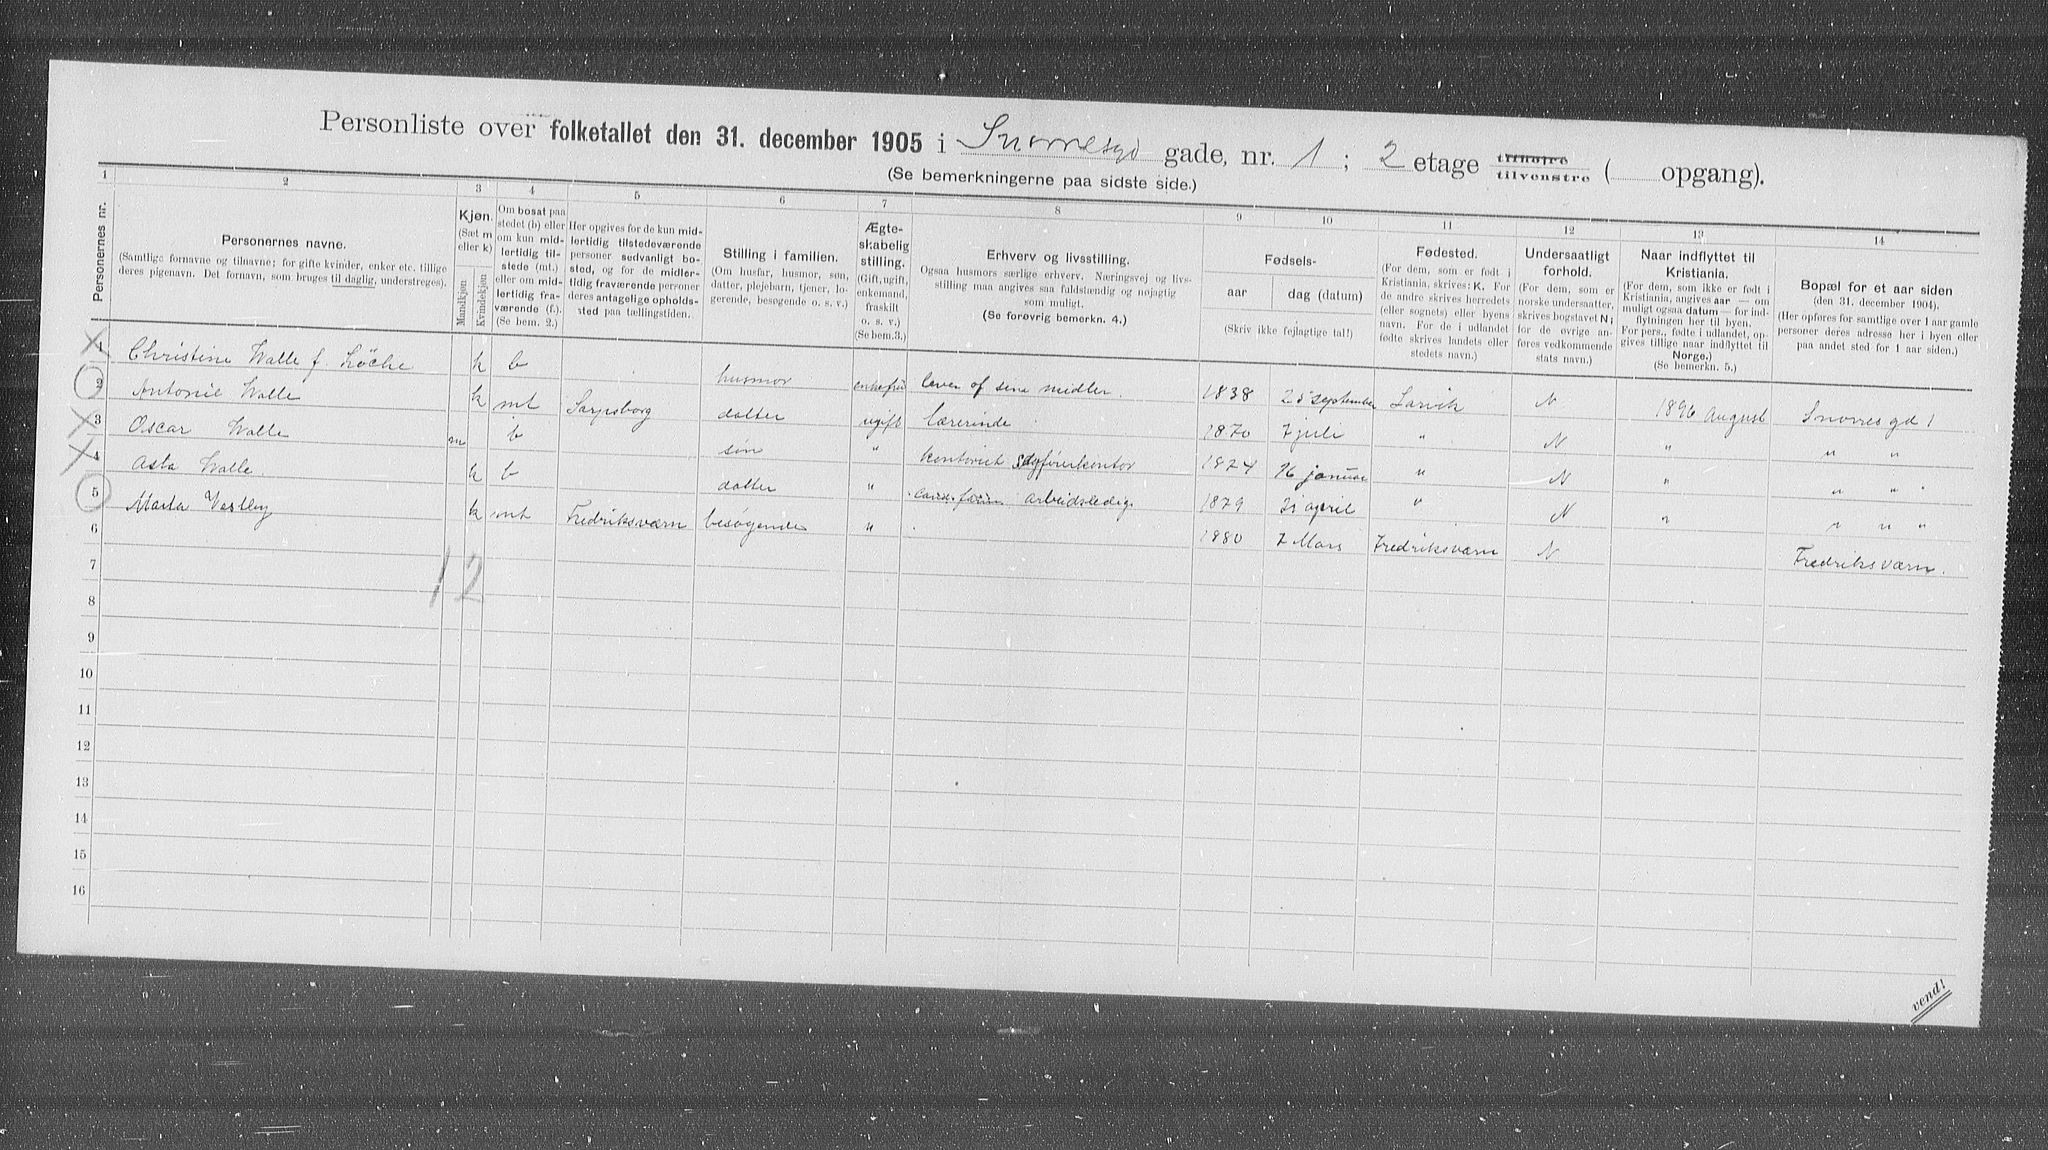 Personliste over folketallet den 31. december 1905 i Snorresgd gade, nr. 1 ; 2 etage tilhøjre tilvenstre ( opgang).
(Se bemerkningerne paa sidste side.)
1 2 3 4 5 6 7 8 9 10 11 12 13 14
Personernes nr.
Personernes navne.
(Samtlige fornavne og tilnavne; for gifte kvinder, enker etc. tillige
deres pigenavn. Det fornavn, som bruges til daglig, understreges).
Kjøn.
(Sæt m
eller k)
Mandkjøn
Kvindekjøn
Om bosat paa
stedet (b) eller
om kun mid-
lertidig til-
stede (mt.)
eller om mid-
lertidig fra-
værende (f.).
(Se bem. 2.)
Her opgives for de kun mid-
lertidig tilstedeværende
personer sedvanligt bo-
sted, og for de midler-
tidig fraværende personer
deres antagelige opholds-
sted paa tællingstiden.
Stilling i familien.
(Om husfar, husmor, søn,
datter, plejebarn, tjener, lo-
gerende, besøgende o. s. v.)
Ægte-
skabelig
stilling.
(Gift, ugift,
enkemand,
fraskilt
o. s. v.)
(Se bem. 3.)
Erhverv og livsstilling.
Ogsaa husmors særlige erhverv. Næringsvej og livs-
stilling maa angives saa fuldstændig og nøjagtig
som muligt.
(Se forøvrig bemerkn. 4.)
Fødsels-
aar
dag (datum)
(Skriv ikke fejlagtige tal!)
Fødested.
(For dem, som er født i
Kristiania, skrives: K. For
de andre skrives herredets
(eller sognets) eller byens
navn. For de i udlandet
fødte skrives landets eller
stedets navn.)
Undersaatligt
forhold.
(For dem, som er
norske undersaatter,
skrives bogstavet N;
for de øvrige an-
føres vedkommende
stats navn.)
Naar indflyttet til
Kristiania.
(For dem, som ikke er født i
Kristiania, angives aar — om
muligt ogsaa datum — for ind-
flytningen her til byen.
For pers., fødte i udlandet, op-
gives tillige naar indflyttet til
Norge.)
(Se bemerkn. 5.)
Bopæl for et aar siden
(den 31. december 1904).
(Her opføres for samtlige over 1 aar gamle
personer deres adresse her i byen eller
paa andet sted for 1 aar siden.)
1 Christine Walle f. Løche k b husmor enkefru lever af sine midler. 1838 25 september Larvik N 1896 August Snorres gd 1
2 Antonie Walle k mt Sarpsborg datter ugift lærerinde 1870 7 juli " N " " "
3 Oscar Walle m b søn " kontorist sagførerkontor 1874 16 januar " N " " "
4 Asta Walle. k b datter " arbeidsledig 1879 21 april " N " " " "
5 Marta Vestby k mt Fredriksværn besøgende " 1880 7 Mars Fredriksværn N Fredriksværn.
6
12
7
8
9
10
11
12
13
14
15
16
vend!